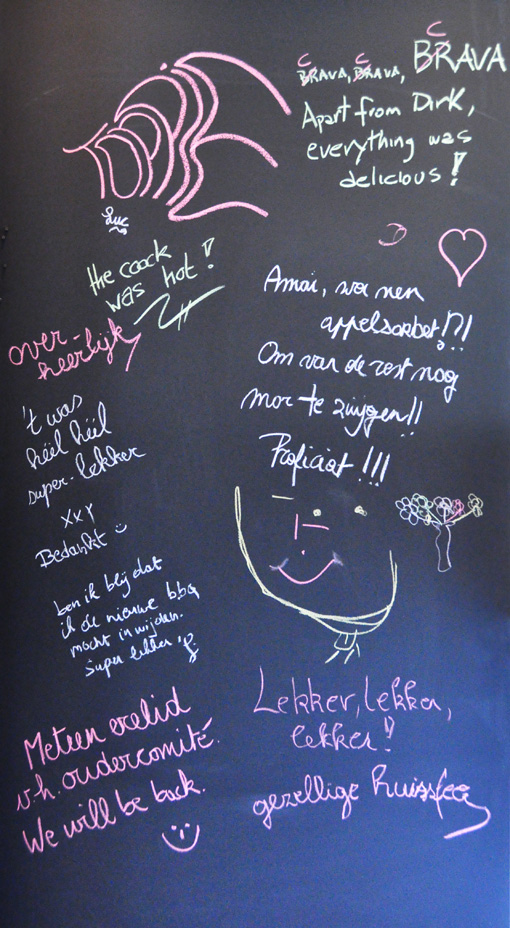 TOPIE
Luc
C C C
BRAVA, BRAVA, BRAVA
Apart from Dirk,
everything was
delicious!
the coock
was hot!
over-
heerlijk
Amai, wa nen
appelsorbet!?!
Om van de rest nog
mor te zwijgen!!
Proficiat!!!
't was
héél héél
super-lekker
xxx
Bedankt
ben ik blij dat
ik de nieuwe bbq
mocht inwijden.
Super lekker
Meteen erelid
v.h. oudercomité.
We will be back.
Lekker, lekker,
lekker!
gezellige huissfeer